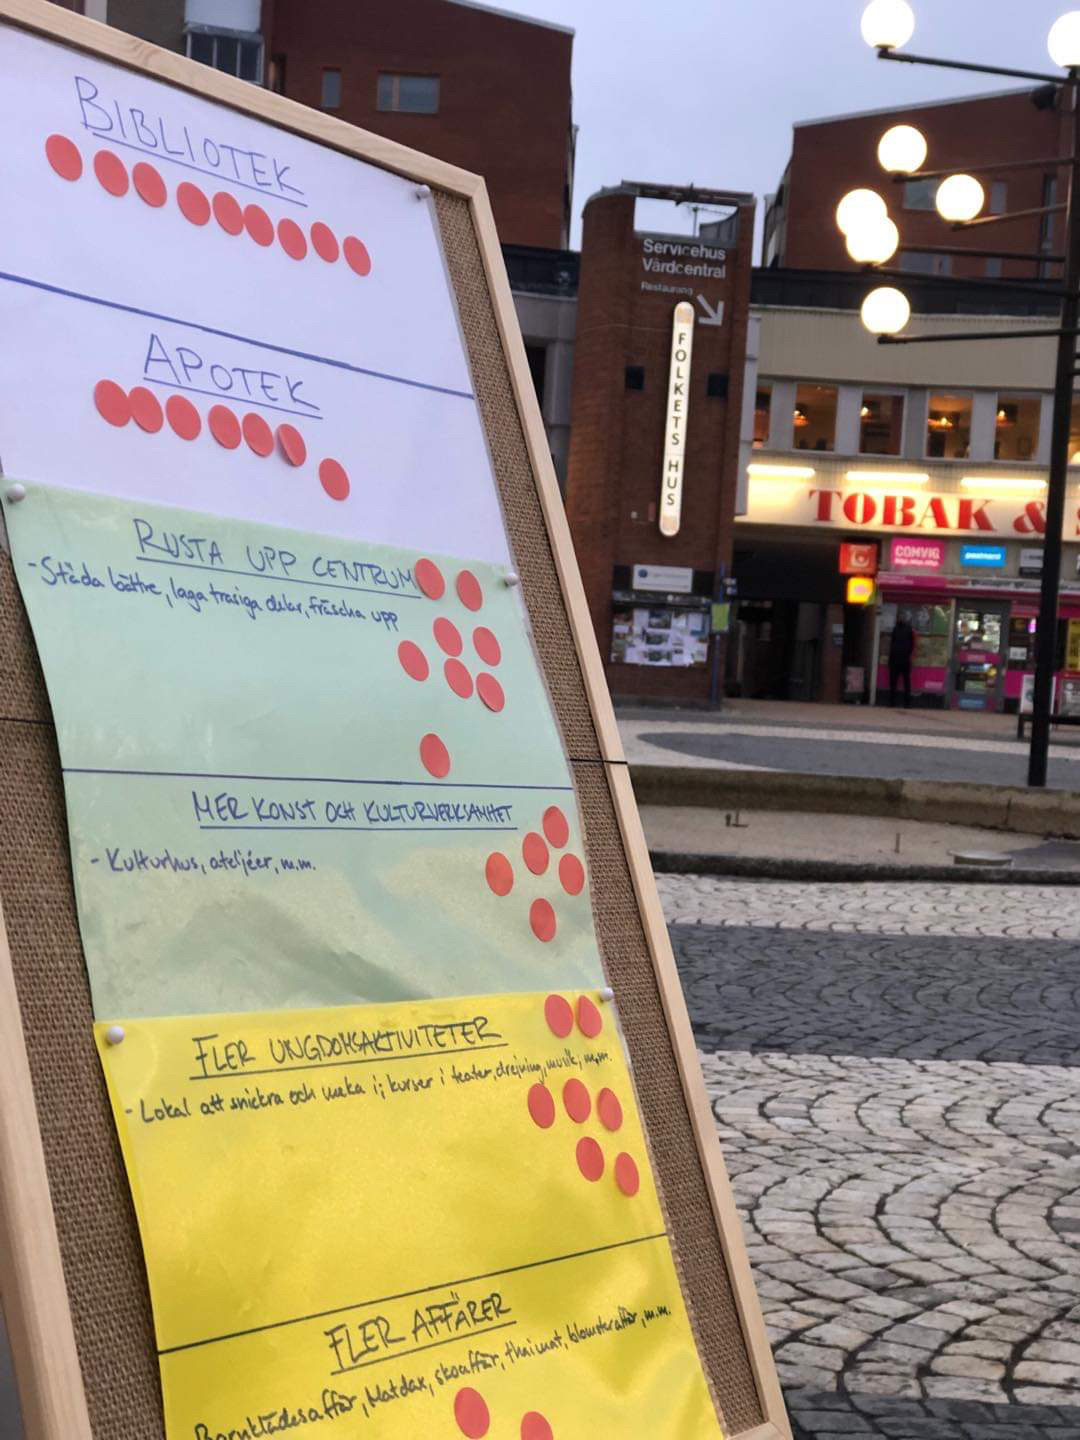 BIBLIOTEK
APOTEK
RUSTA UPP CENTRUM
- Städa bättre, laga trasiga delar, fräscha upp
MER KONST OCH KULTURVERKSAMHET
- Kulturhus, ateljéer, m.m.
FLER UNGDOMSAKTIVITETER
- Lokal att snickra och meka i; kurser i teater, drejning, musik, m.m.
FLER AFFÄRER
Barnklädesaffär, Matdax, skoaffär, thaimat, blomsteraffär, m.m.
Servicehus
Vårdcentral
Restaurang
FOLKETS HUS
TOBAK &
COMVIQ
postnord